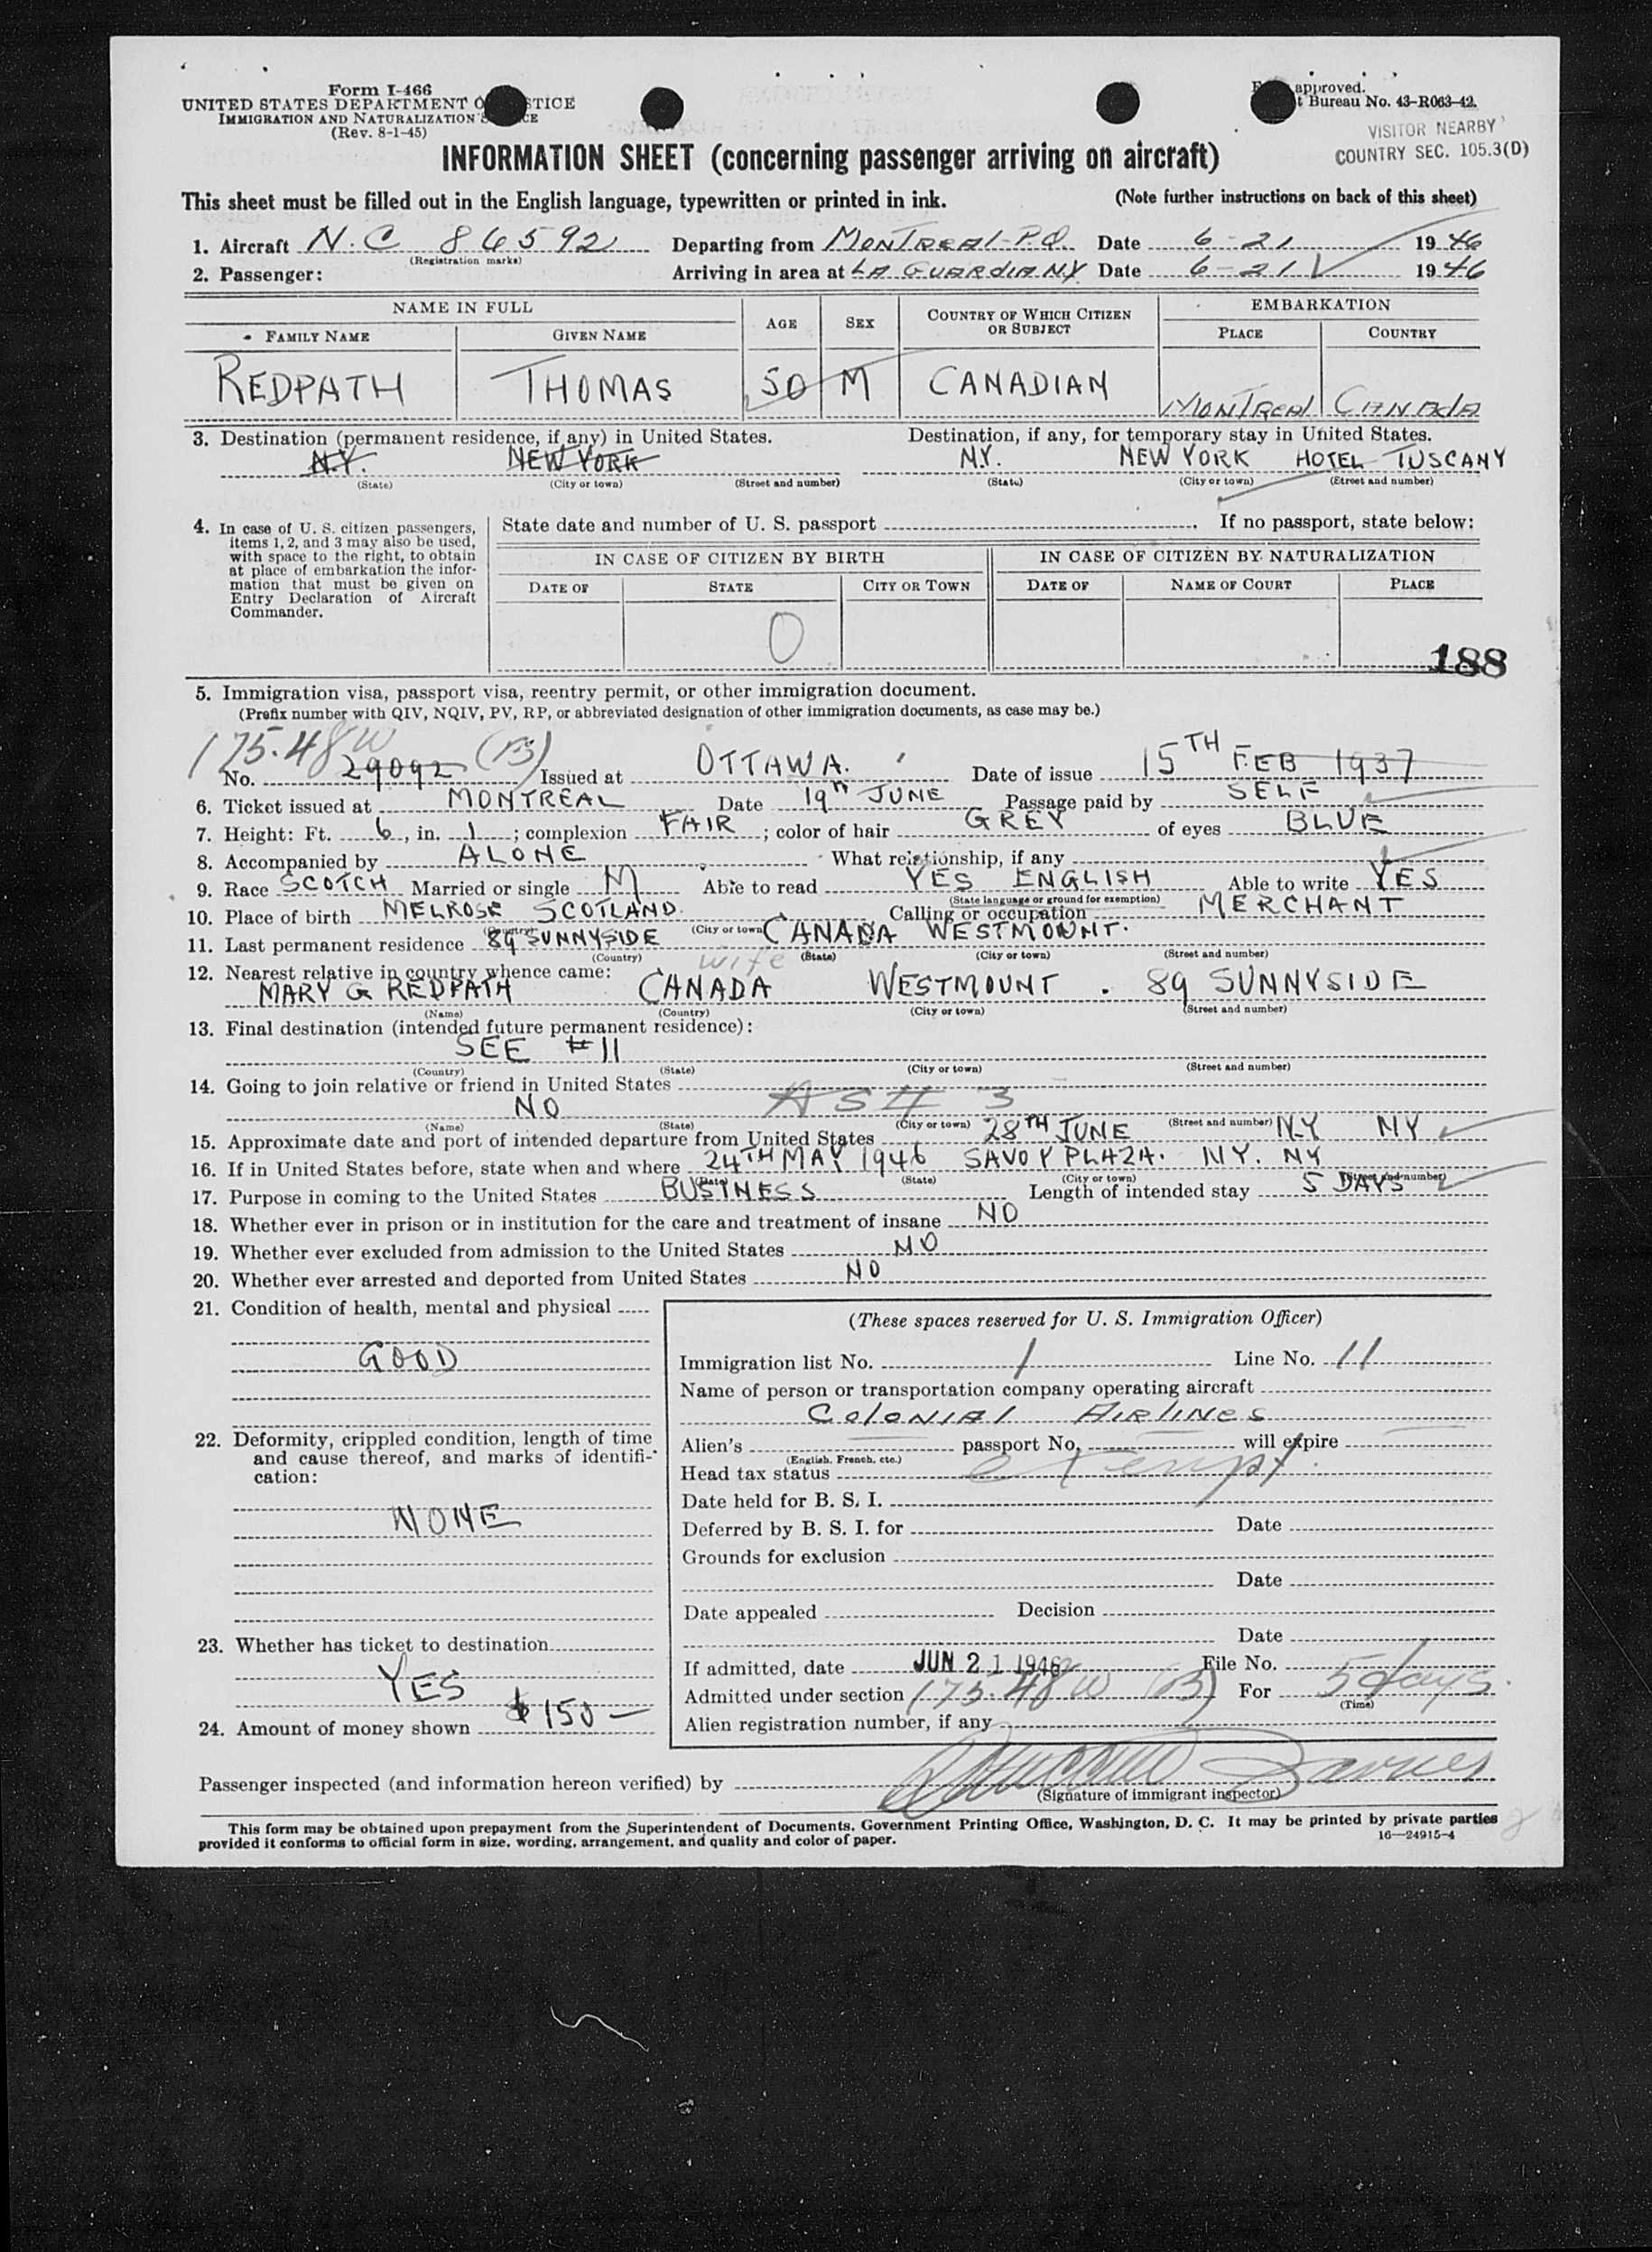 Form I-466
UNITED STATES DEPARTMENT O STICE
IMMIGRATION AND NATURALIZATION S CE
(Rev. 8-1-45)
approved.
t Bureau No. 43-R063-42.
VISITOR NEARBY
COUNTRY SEC. 105.3(D)
INFORMATION SHEET (concerning passenger arriving on aircraft)
This sheet must be filled out in the English language, typewritten or printed in ink. (Note further instructions on back of this sheet)
1. Aircraft N.C 86592 Departing from MONTREAL P.Q. Date 6-21 1946
(Registration marks)
2. Passenger: Arriving in area at LA GUARDIA NY Date 6-21 1946
NAME IN FULL AGE SEX COUNTRY OF WHICH CITIZEN OR SUBJECT EMBARKATION
FAMILY NAME GIVEN NAME PLACE COUNTRY
REDPATH THOMAS 50 M CANADIAN MONTREAL CANADA
3. Destination (permanent residence, if any) in United States. Destination, if any, for temporary stay in United States.
N.Y. NEW YORK N.Y. NEW YORK HOTEL TUSCANY
(State) (City or town) (Street and number) (State) (City or town) (Street and number)
4. In case of U. S. citizen passengers, items 1, 2, and 3 may also be used, with space to the right, to obtain at place of embarkation the information that must be given on Entry Declaration of Aircraft Commander.
State date and number of U. S. passport . If no passport, state below:
IN CASE OF CITIZEN BY BIRTH IN CASE OF CITIZEN BY NATURALIZATION
DATE OF STATE CITY OR TOWN DATE OF NAME OF COURT PLACE
0
188
5. Immigration visa, passport visa, reentry permit, or other immigration document.
(Prefix number with QIV, NQIV, PV, RP, or abbreviated designation of other immigration documents, as case may be.)
175.48W (B)
No. 29092 Issued at OTTAWA. Date of issue 15TH FEB 1937
6. Ticket issued at MONTREAL Date 19TH JUNE Passage paid by SELF
7. Height: Ft. 6, in. 1; complexion FAIR; color of hair GREY of eyes BLUE
8. Accompanied by ALONE What relationship, if any
9. Race SCOTCH Married or single M Able to read YES ENGLISH Able to write YES
(State language or ground for exemption)
10. Place of birth MELROSE SCOTLAND. Calling or occupation MERCHANT
(Country) (City or town)
11. Last permanent residence 89 SUNNYSIDE CANADA WESTMOUNT.
(Country) (State) (City or town) (Street and number)
12. Nearest relative in country whence came: wife
MARY G REDPATH CANADA WESTMOUNT. 89 SUNNYSIDE
(Name) (Country) (City or town) (Street and number)
13. Final destination (intended future permanent residence):
SEE #11
(Country) (State) (City or town) (Street and number)
14. Going to join relative or friend in United States
NO
(Name) (State) (City or town) (Street and number)
15. Approximate date and port of intended departure from United States 28TH JUNE N.Y NY
16. If in United States before, state when and where 24TH MAY 1946 SAVOY PLAZA. NY. NY
(Date) (State) (City or town) (Street and number)
17. Purpose in coming to the United States BUSINESS Length of intended stay 5 DAYS
18. Whether ever in prison or in institution for the care and treatment of insane NO
19. Whether ever excluded from admission to the United States NO
20. Whether ever arrested and deported from United States NO
21. Condition of health, mental and physical
GOOD
22. Deformity, crippled condition, length of time and cause thereof, and marks of identification:
NONE
23. Whether has ticket to destination
YES
24. Amount of money shown $150—
(These spaces reserved for U. S. Immigration Officer)
Immigration list No. 1 Line No. 11
Name of person or transportation company operating aircraft
COLONIAL AIRLINES
Alien's passport No. will expire
(English, French, etc.)
Head tax status exempt
Date held for B. S. I.
Deferred by B. S. I. for Date
Grounds for exclusion
Date
Date appealed Decision
Date
If admitted, date JUN 21 1946 File No.
Admitted under section 175.48W (B) For 5 days.
(Time)
Alien registration number, if any
Passenger inspected (and information hereon verified) by
(Signature of immigrant inspector)
This form may be obtained upon prepayment from the Superintendent of Documents, Government Printing Office, Washington, D. C. It may be printed by private parties
provided it conforms to official form in size, wording, arrangement, and quality and color of paper. 16—24915-4